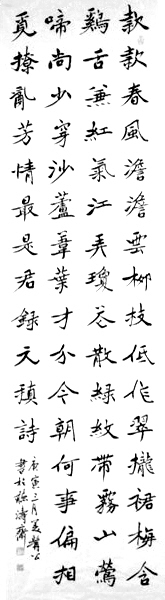 款款春風澹澹雲柳枝低作翠攏裙梅含
鷄舌兼紅氣江弄瓊花散綠紋帶霧山鶯
啼尚少穿沙蘆葦葉才分今朝何事偏相
覓撩亂芳情最是君錄元稹詩
庚寅三月
書於濤齋